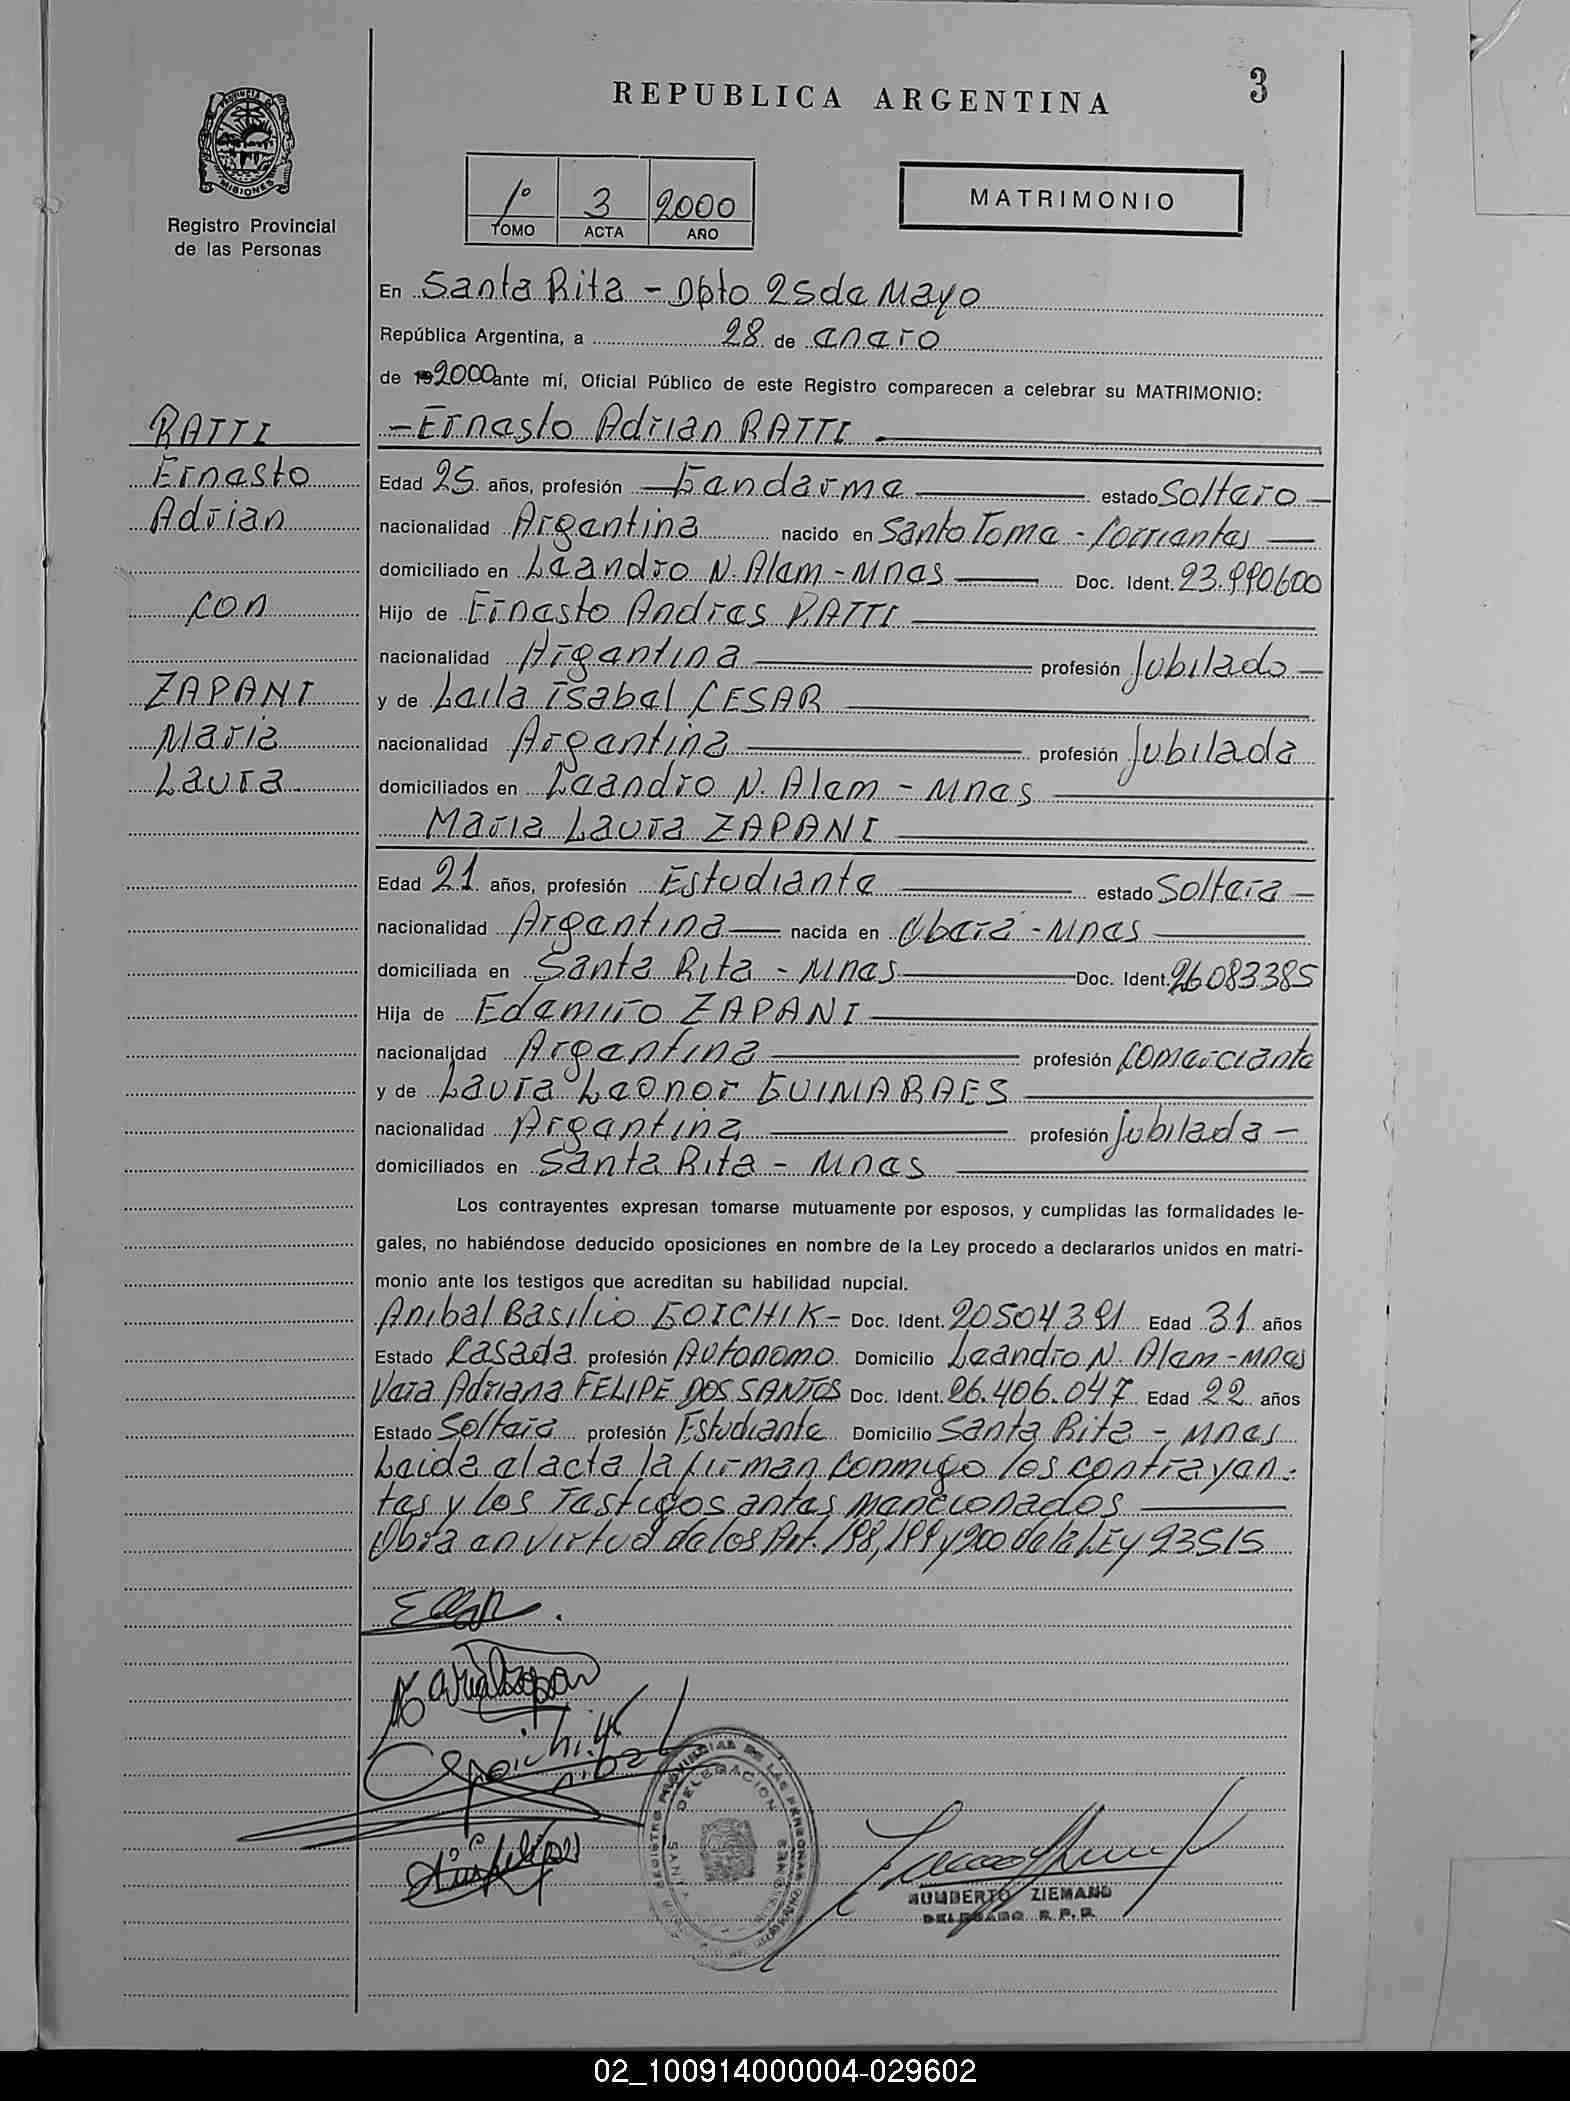 REPUBLICA ARGENTINA
3
PROVINCIA DE MISIONES
Registro Provincial
de las Personas
1º 3 2000
TOMO ACTA AÑO
MATRIMONIO
En Santa Rita - Dpto 25 de Mayo
República Argentina, a 28 de enero
de 19 2000 ante mí, Oficial Público de este Registro comparecen a celebrar su MATRIMONIO:
RATTI
Ernesto
Adrian
con
ZAPANI
Maria
Laura
- Ernesto Adrian RATTI
Edad 25 años, profesión Gendarme estado Soltero
nacionalidad Argentina nacido en Santo Tome - Corrientes
domiciliado en Leandro N. Alem - Mnes Doc. Ident. 23.990600
Hijo de Ernesto Andres RATTI
nacionalidad Argentina profesión Jubilado
y de Leila Isabel CESAR
nacionalidad Argentina profesión Jubilada
domiciliados en Leandro N. Alem - Mnes
Maria Laura ZAPANI
Edad 21 años, profesión Estudiante estado Soltera
nacionalidad Argentina nacida en Oberá - Mnes
domiciliada en Santa Rita - Mnes Doc. Ident. 26083385
Hija de Edemiro ZAPANI
nacionalidad Argentina profesión Comerciante
y de Laura Leonor GUIMARAES
nacionalidad Argentina profesión jubilada
domiciliados en Santa Rita - Mnes
Los contrayentes expresan tomarse mutuamente por esposos, y cumplidas las formalidades le-
gales, no habiéndose deducido oposiciones en nombre de la Ley procedo a declararlos unidos en matri-
monio ante los testigos que acreditan su habilidad nupcial.
Anibal Basilio GOICHIK - Doc. Ident. 20504391 Edad 31 años
Estado Casada profesión Autonomo Domicilio Leandro N. Alem - Mnes
Vera Adriana FELIPE DOS SANTOS Doc. Ident. 26.406.047 Edad 22 años
Estado Soltera profesión Estudiante Domicilio Santa Rita - Mnes
Leida el acta la firman conmigo los contrayen-
tes y los Testigos antes mencionados
Obra en virtud de los Art. 198, 199 y 200 de la LEy 23515
Goichik
Anibal
REGISTRO PROVINCIAL DE LAS PERSONAS
DELEGACION
SANTA RITA
MISIONES
HUMBERTO ZIEMAND
DELEGADO R. P. P.
02_100914000004-029602